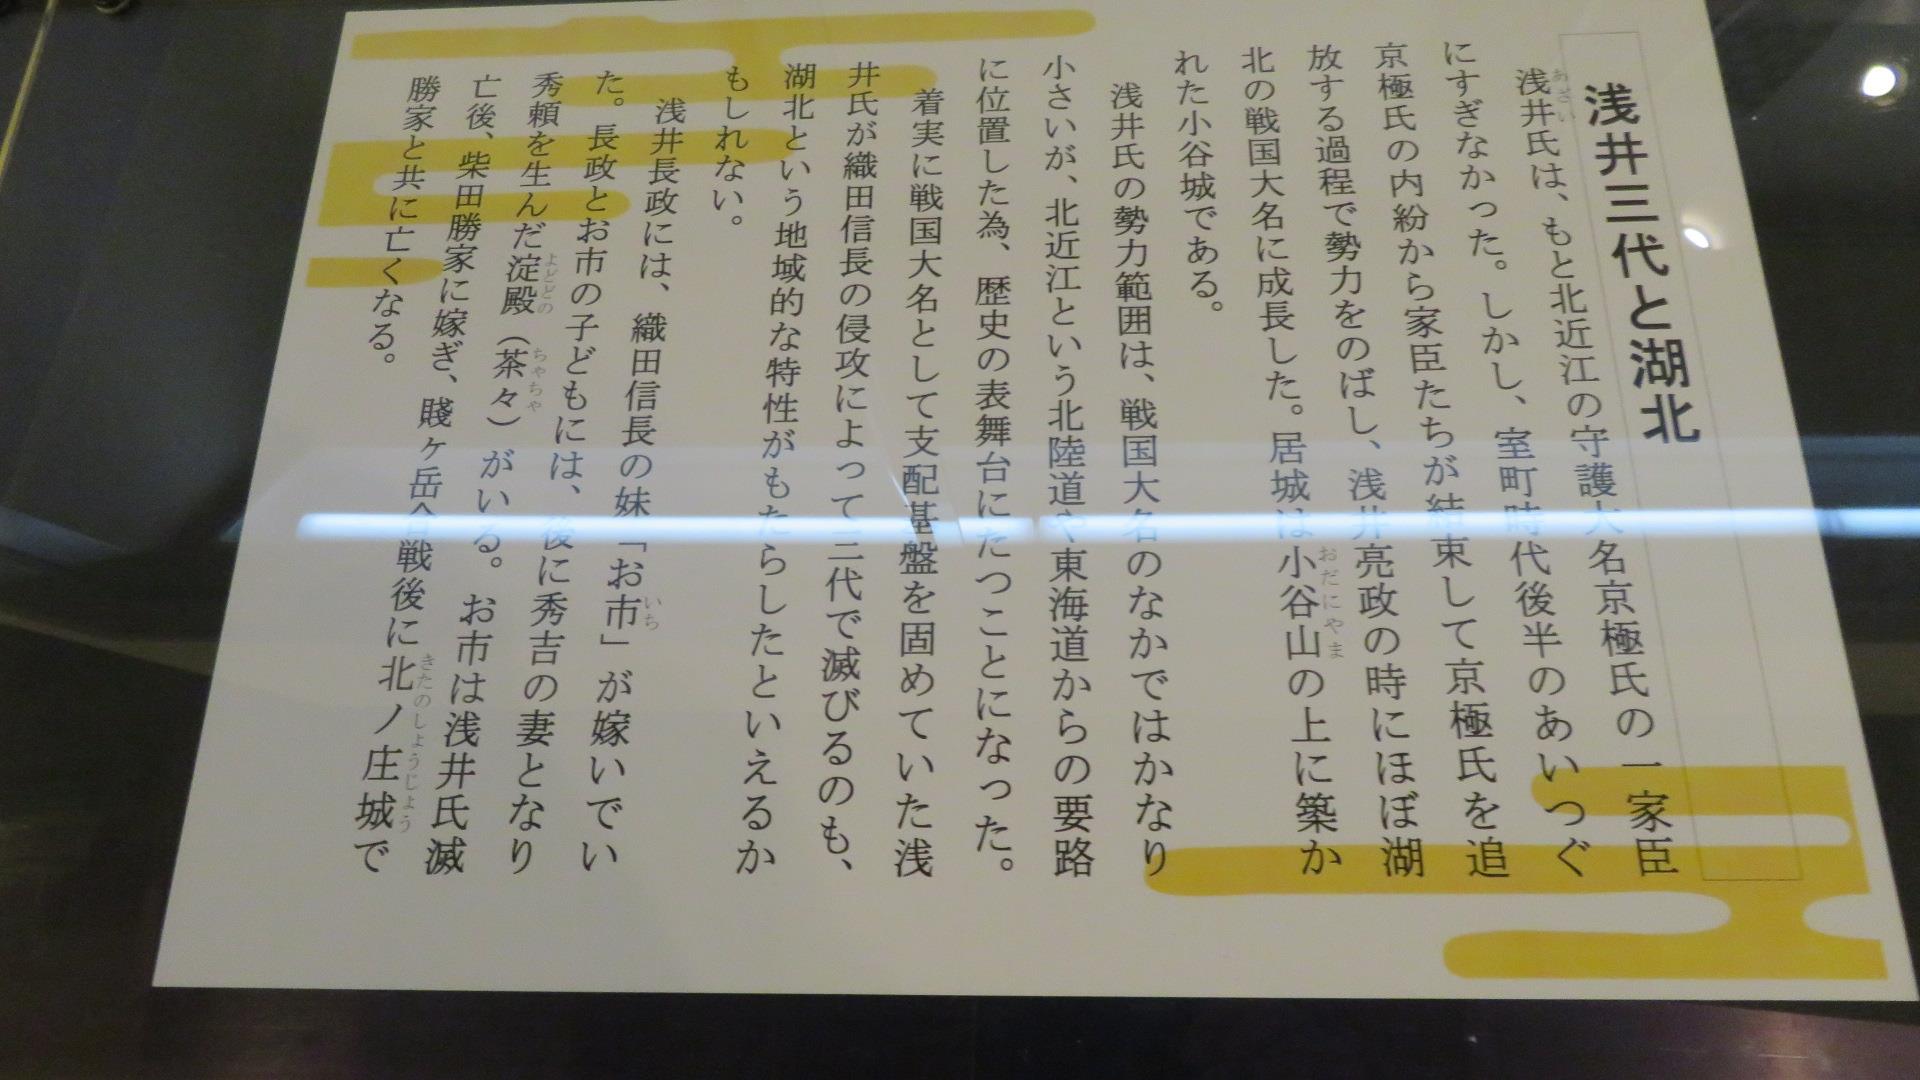 浅井三代と湖北
浅井氏は、もと北近江の守護大名京極氏の一家臣
にすぎなかった。しかし、室町時代後半のあいつぐ
京極氏の内紛から家臣たちが結束して京極氏を追
放する過程で勢力をのばし、浅井亮政の時にほぼ湖
北の戦国大名に成長した。居城は小谷山の上に築か
れた小谷城である。
浅井氏の勢力範囲は、戦国大名のなかではかなり
小さいが、北近江という北陸道や東海道からの要路
に位置した為、歴史の表舞台にたつことになった。
着実に戦国大名として支配基盤を固めていた浅
井氏が織田信長の侵攻によって三代で滅びるのも、
湖北という地域的な特性がもたらしたといえるか
もしれない。
浅井長政には、織田信長の妹「お市」が嫁いでい
た。長政とお市の子どもには、後に秀吉の妻となり
秀頼を生んだ淀殿（茶々）がいる。お市は浅井氏滅
亡後、柴田勝家に嫁ぎ、賤ヶ岳合戦後に北ノ庄城で
勝家と共に亡くなる。
あざい
おだにやま
いち
よどどの
ちゃちゃ
きたのしょうじょう